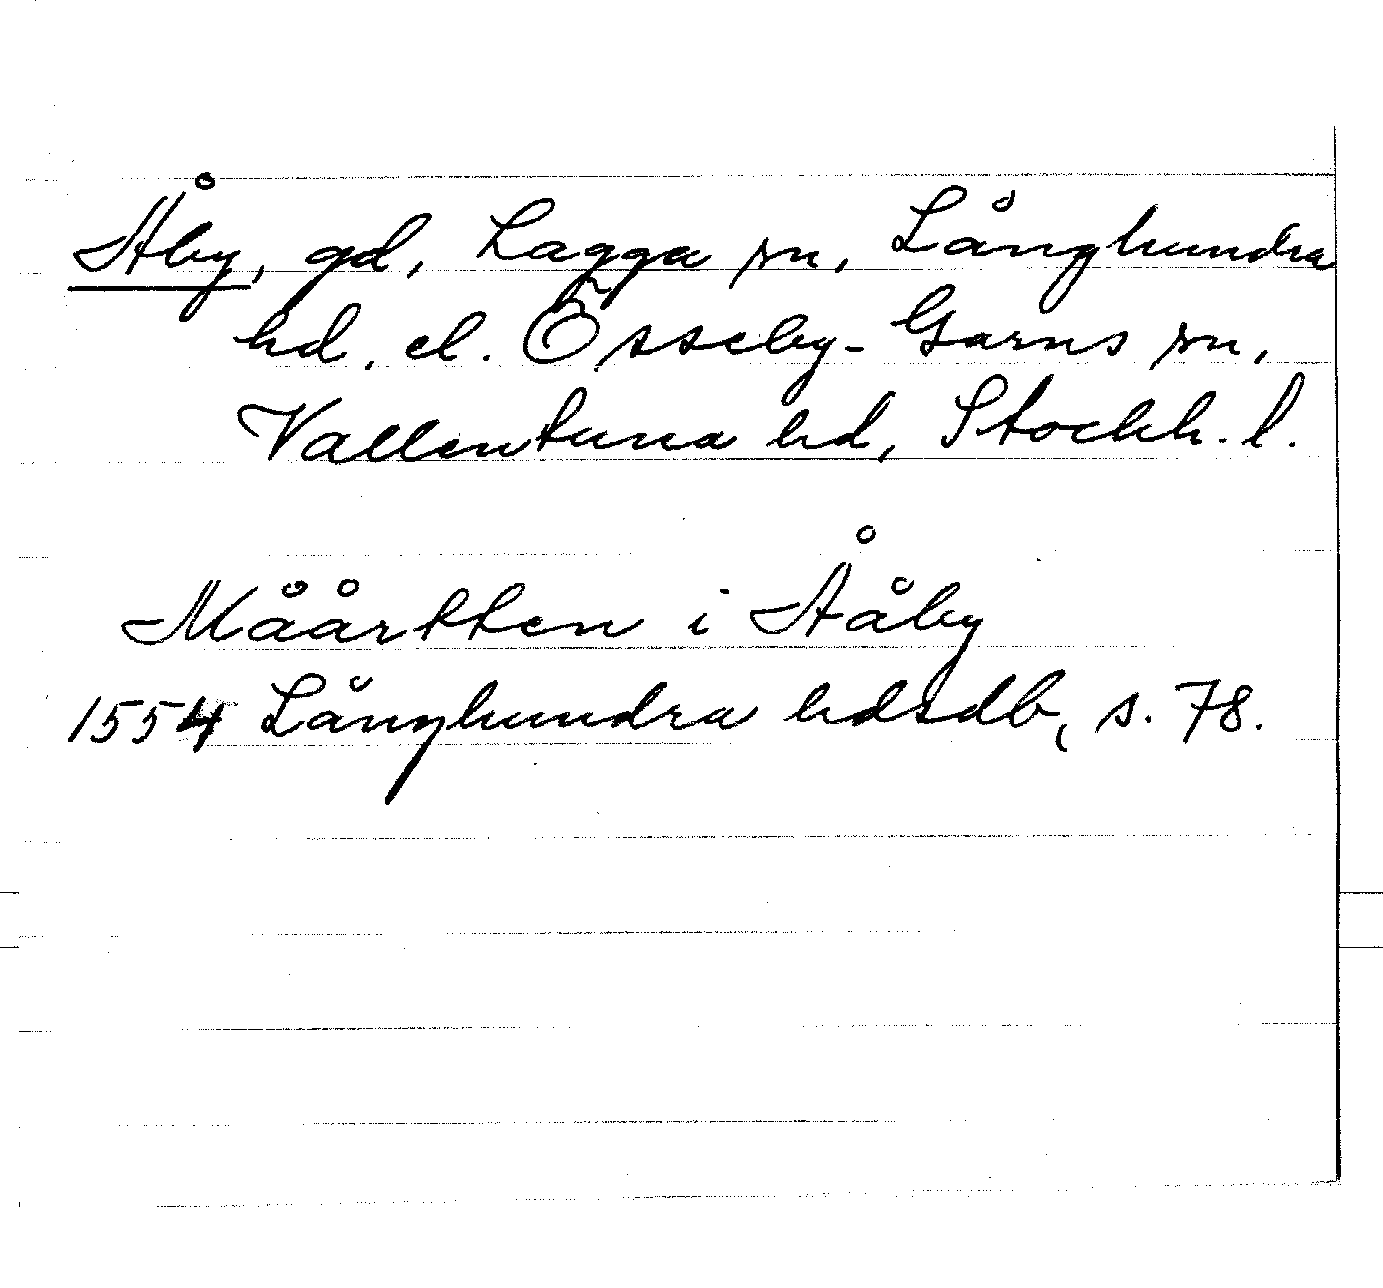 Åby, gd, Lagga sn, Långhundra
hd. el. Össeby-Garns sn,
Vallentuna hd, Stockh. l.
Måårtten i Ååby
1554 Långhundra hdsdb, s. 78.